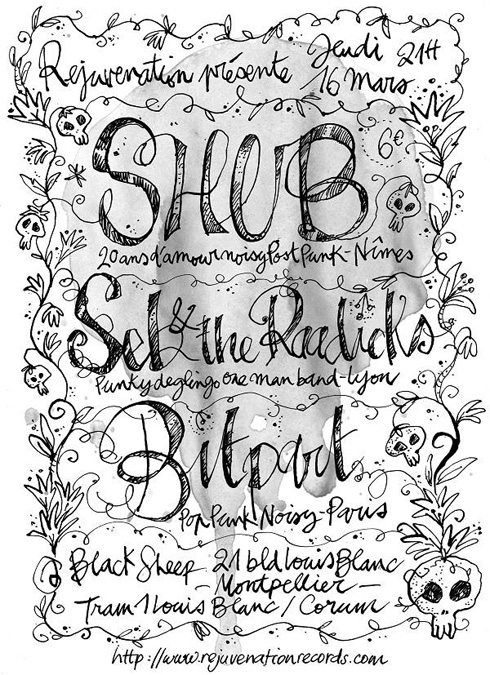 Rejuvenation présente Jeudi 21H
16 Mars
6€
SHUB
20 ans d'amour noisy Post Punk - Nîmes
Sel & the Raadicks
Punky deglingo one man band - Lyon
Bitpart
Pop Punk Noisy - Paris
Black Sheep - 21 bld Louis Blanc
- Montpellier -
Tram 1 Louis Blanc / Corum
http://www.rejuvenationrecords.com